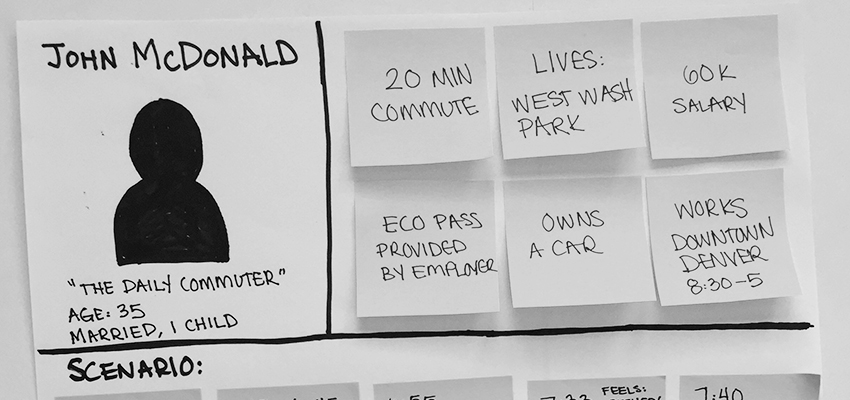 JOHN MCDONALD
"THE DAILY COMMUTER"
AGE: 35
MARRIED, 1 CHILD
20 MIN
COMMUTE
LIVES:
WEST WASH
PARK
60K
SALARY
ECO PASS
PROVIDED
BY EMPLOYER
OWNS
A CAR
WORKS
DOWNTOWN
DENVER
8:30-5
SCENARIO:
FEELS:
7:40